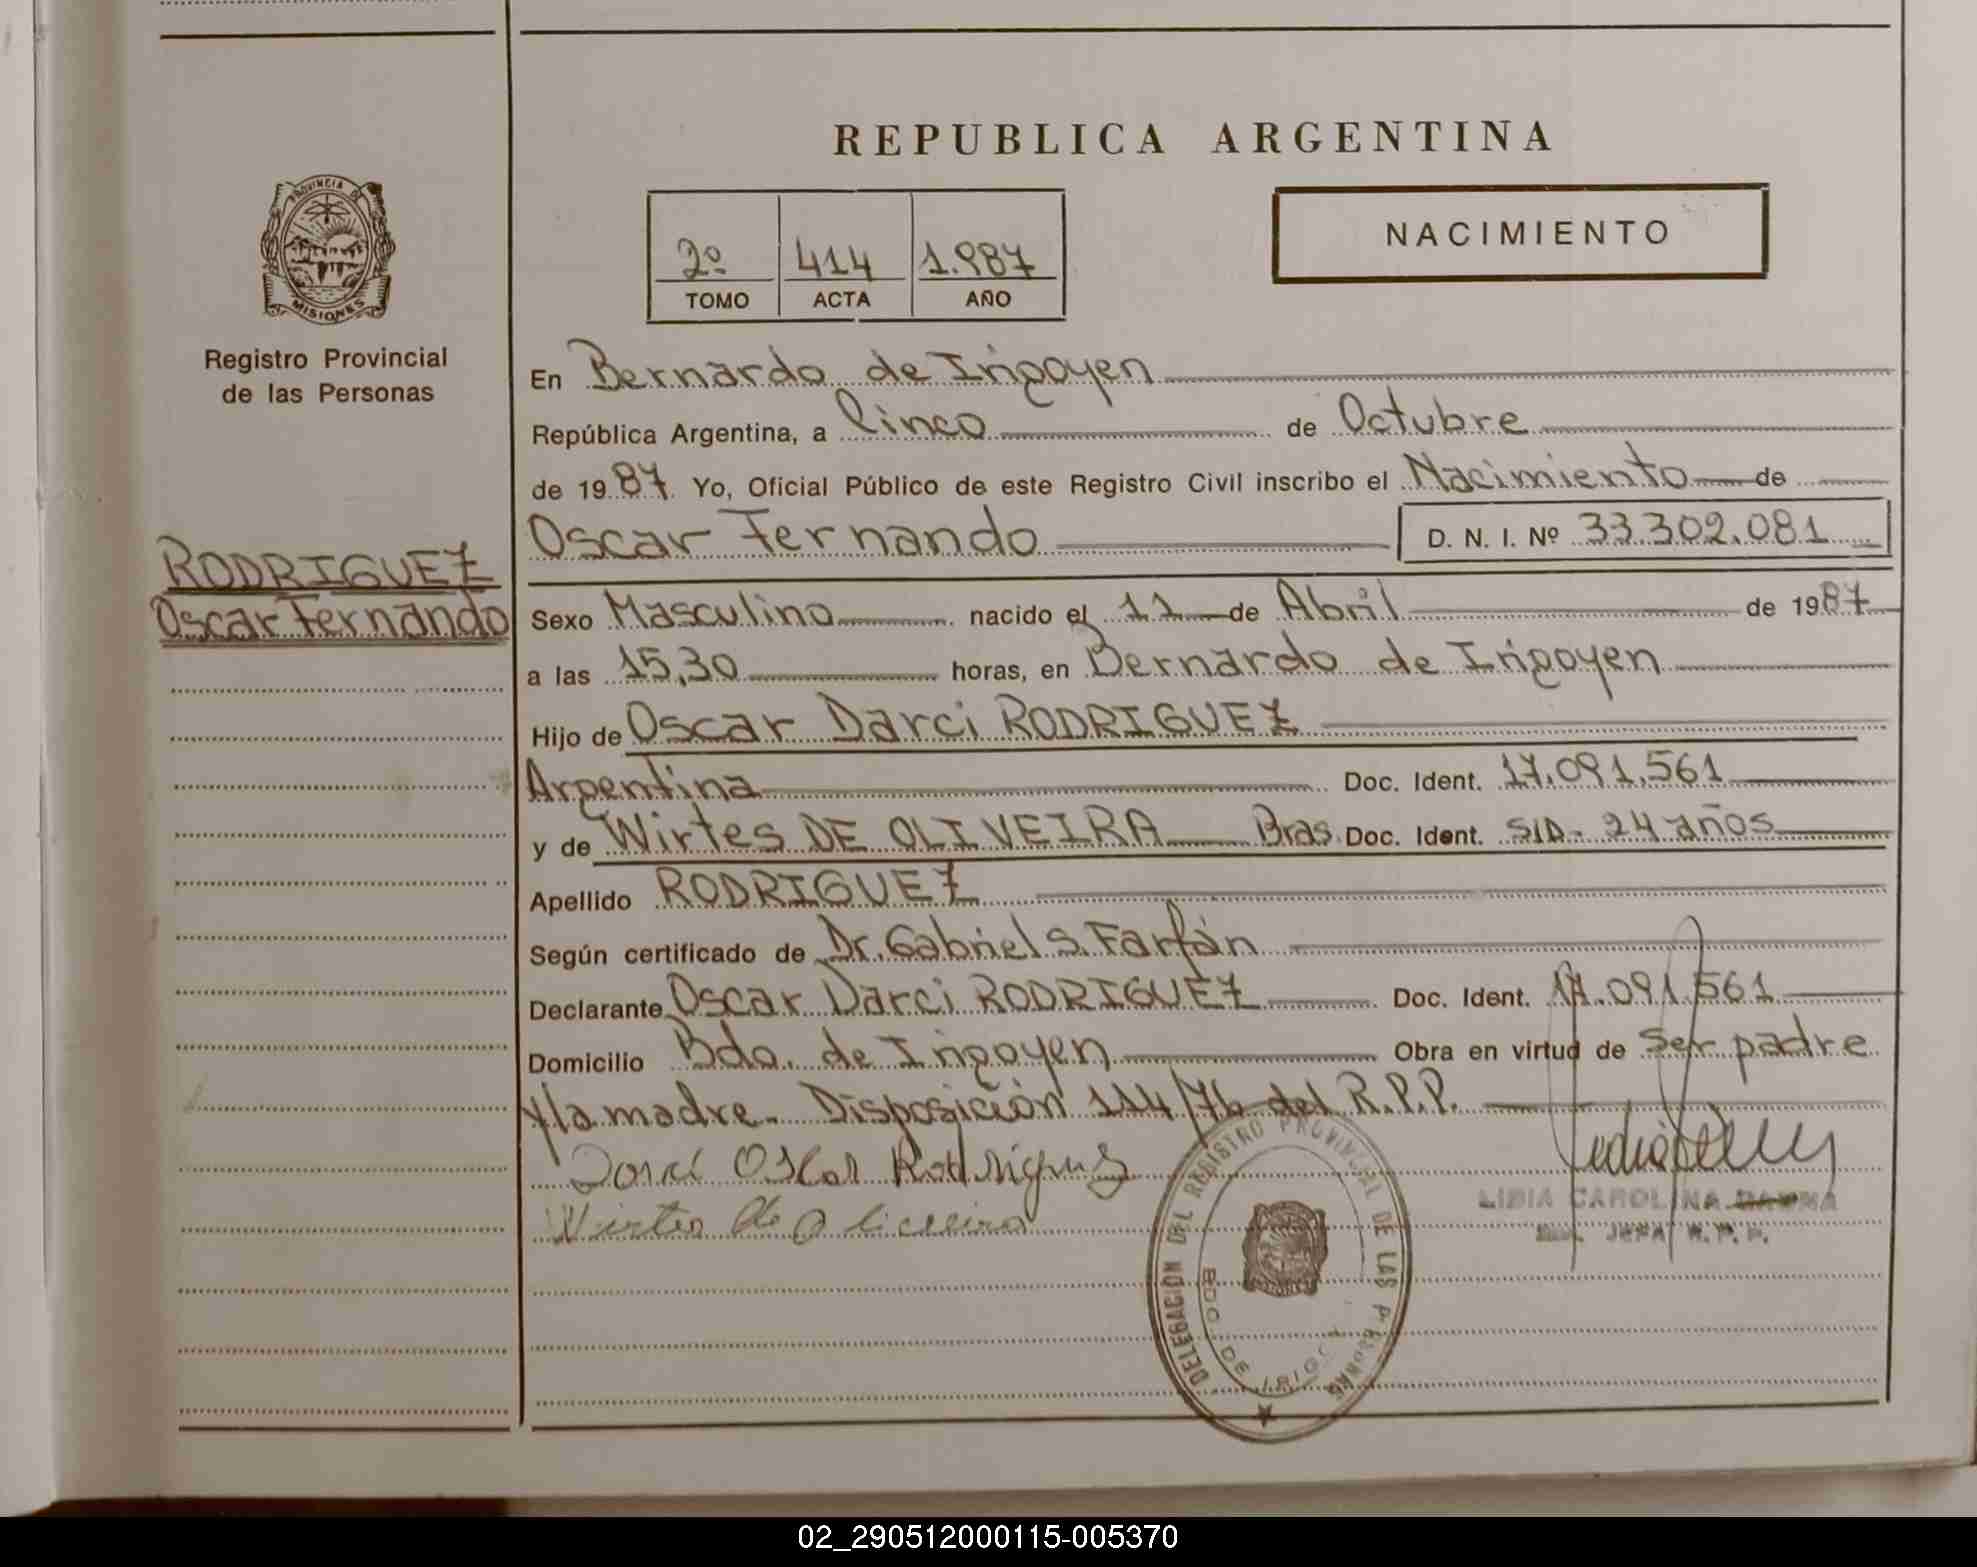 REPUBLICA ARGENTINA
NACIMIENTO
2º 414 1.987
TOMO ACTA AÑO
PROVINCIA DE
MISIONES
Registro Provincial
de las Personas
RODRIGUEZ
Oscar Fernando
En Bernardo de Irigoyen
República Argentina, a Cinco de Octubre
de 1987. Yo, Oficial Público de este Registro Civil inscribo el Nacimiento de
Oscar Fernando D. N. I. Nº 33.302.081
Sexo Masculino nacido el 11 de Abril de 1987
a las 15,30 horas, en Bernardo de Irigoyen
Hijo de Oscar Darci RODRIGUEZ
Argentina Doc. Ident. 17.091.561
y de Wirtes DE OLIVEIRA Bras. Doc. Ident. S/D- 24 años
Apellido RODRIGUEZ
Según certificado de Dr. Gabriel S. Farfán
Declarante Oscar Darci RODRIGUEZ Doc. Ident. 17.091.561
Domicilio Bdo. de Irigoyen Obra en virtud de ser padre
y la madre. Disposición 114/76 del R.P.P.
Oscar Rodriguez
Wirtes de Oliveira
LIDIA CAROLINA
JEFA R. P. P.
DELEGACION DEL REGISTRO PROVINCIAL DE LAS PERSONAS
BDO DE IRIGOYEN
02_290512000115-005370